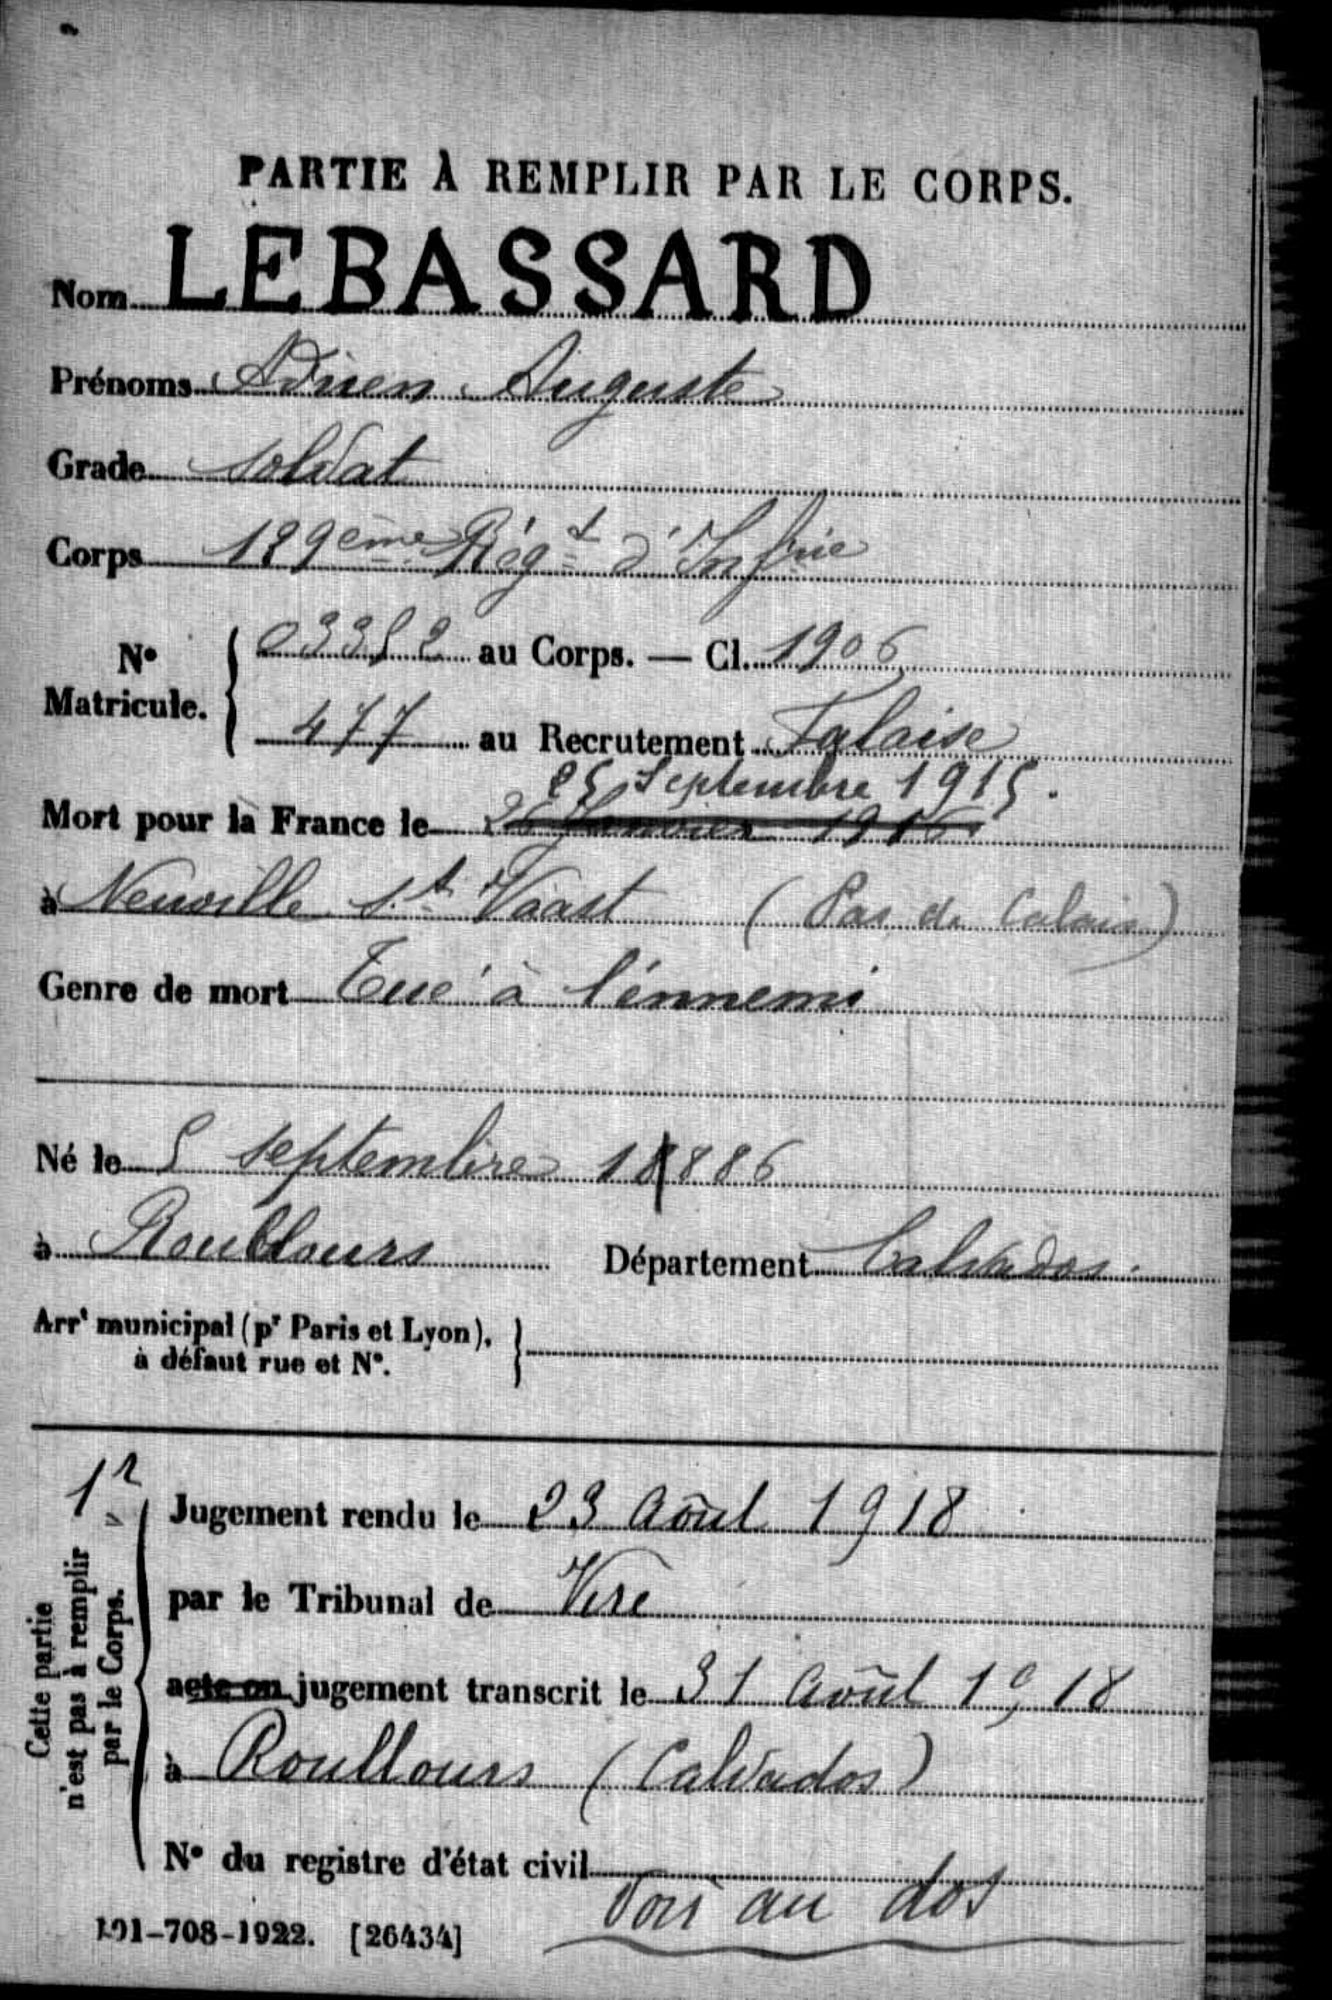 PARTIE À REMPLIR PAR LE CORPS.
Nom LEBASSARD
Prénoms Adrien Auguste
Grade Soldat
Corps 129ème Régt d'Infrie
N° Matricule. 03352 au Corps. — Cl. 1906
477 au Recrutement Falaise
25 Septembre 1915.
Mort pour la France le 26 Janvier 1916
à Neuville St Vaast (Pas de Calais)
Genre de mort Tué à l'énnemi
Né le 5 Septembre 18886
à Roullours Département Calvados.
Arrt municipal (pr Paris et Lyon),
à défaut rue et N°.
Cette partie
n'est pas à remplir
par le Corps.
Jugement rendu le 23 Août 1918
par le Tribunal de Vire
acte ou jugement transcrit le 31 Août 1918
à Roullours (Calvados)
N° du registre d'état civil
Voir au dos
101-708-1922. [26434]